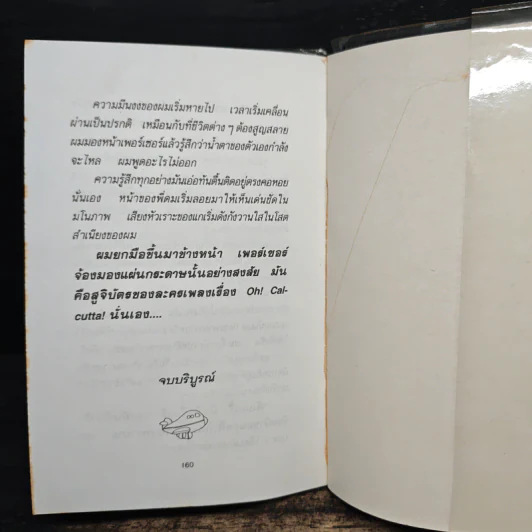 ความมึนงงของผมเริ่มหายไป เวลาเริ่มเคลื่อน
ผ่านเป็นปรกติ เหมือนกับที่ชีวิตต่าง ๆ ต้องสูญสลาย
ผมมองหน้าเพอร์เซอร์แล้วรู้สึกว่าน้ำตาของตัวเองกำลัง
จะไหล ผมพูดอะไรไม่ออก
ความรู้สึกทุกอย่างมันเอ่อทันตื้นติดอยู่ตรงคอหอย
นั่นเอง หน้าของพี่ดมเริ่มลอยมาให้เห็นเด่นชัดใน
มโนภาพ เสียงหัวเราะของแกเริ่มดังกังวานใสในโสต
สำเนียงของผม
ผมยกมือขึ้นมาข้างหน้า เพอร์เซอร์
จ้องมองแผ่นกระดาษนั้นอย่างสงสัย มัน
คือสูจิบัตรของละครเพลงเรื่อง Oh! Cal-
cutta! นั่นเอง....
จบบริบูรณ์
160